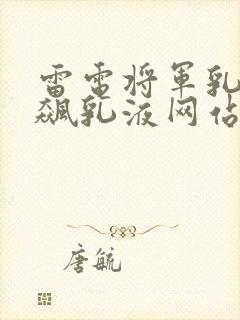 雷电将军乳
飙乳液网站
唐毓